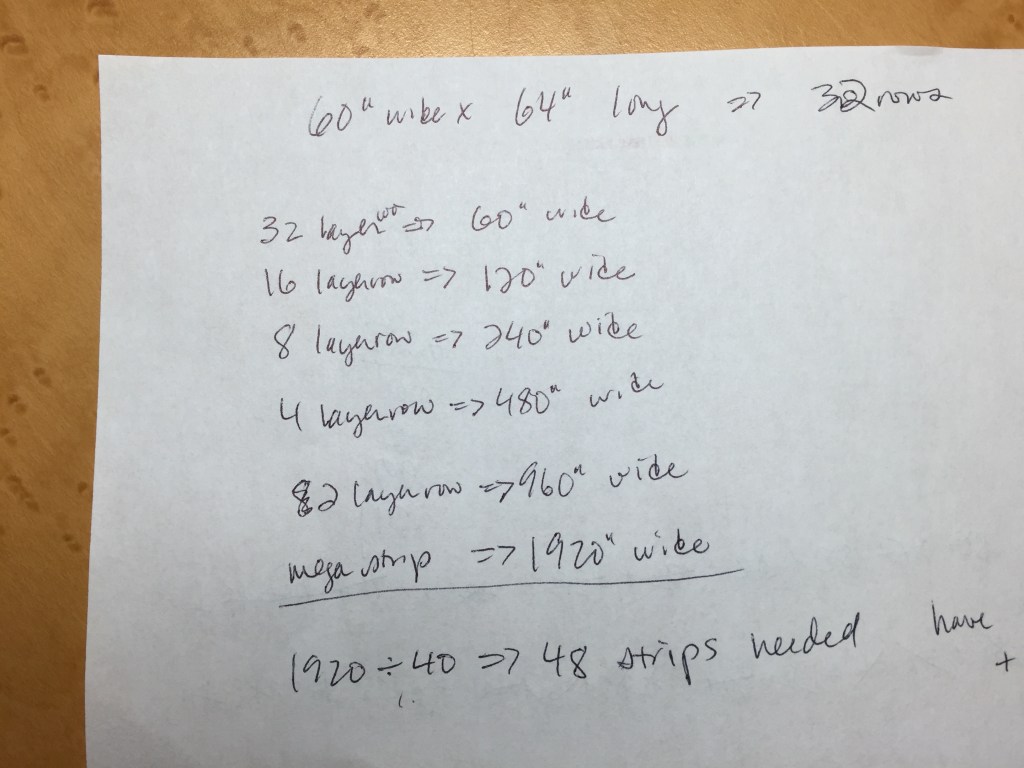 60" wide x 64" long => 32 rows
32 layer row => 60" wide
16 layerrow => 120" wide
8 layerrow => 240" wide
4 layerrow => 480" wide
2 layerrow => 960" wide
mega strip => 1920" wide
1920 ÷ 40 => 48 strips needed have
+